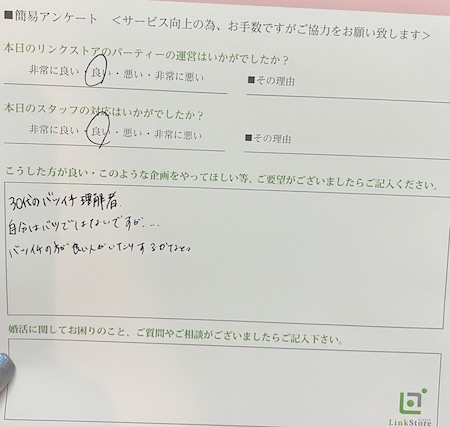 ■簡易アンケート ＜サービス向上の為、お手数ですがご協力をお願い致します＞
本日のリンクストアのパーティーの運営はいかがでしたか？
非常に良い・良い・悪い・非常に悪い ■その理由
本日のスタッフの対応はいかがでしたか？
非常に良い・良い・悪い・非常に悪い ■その理由
こうした方が良い・このような企画をやってほしい等、ご要望がございましたらご記入ください。
30代のバツイチ理解者
自分はバツではないですが、…
バツイチの方が良い人がいたりするかなと。
婚活に関してお困りのこと、ご質問やご相談がございましたらご記入下さい。
LinkStore